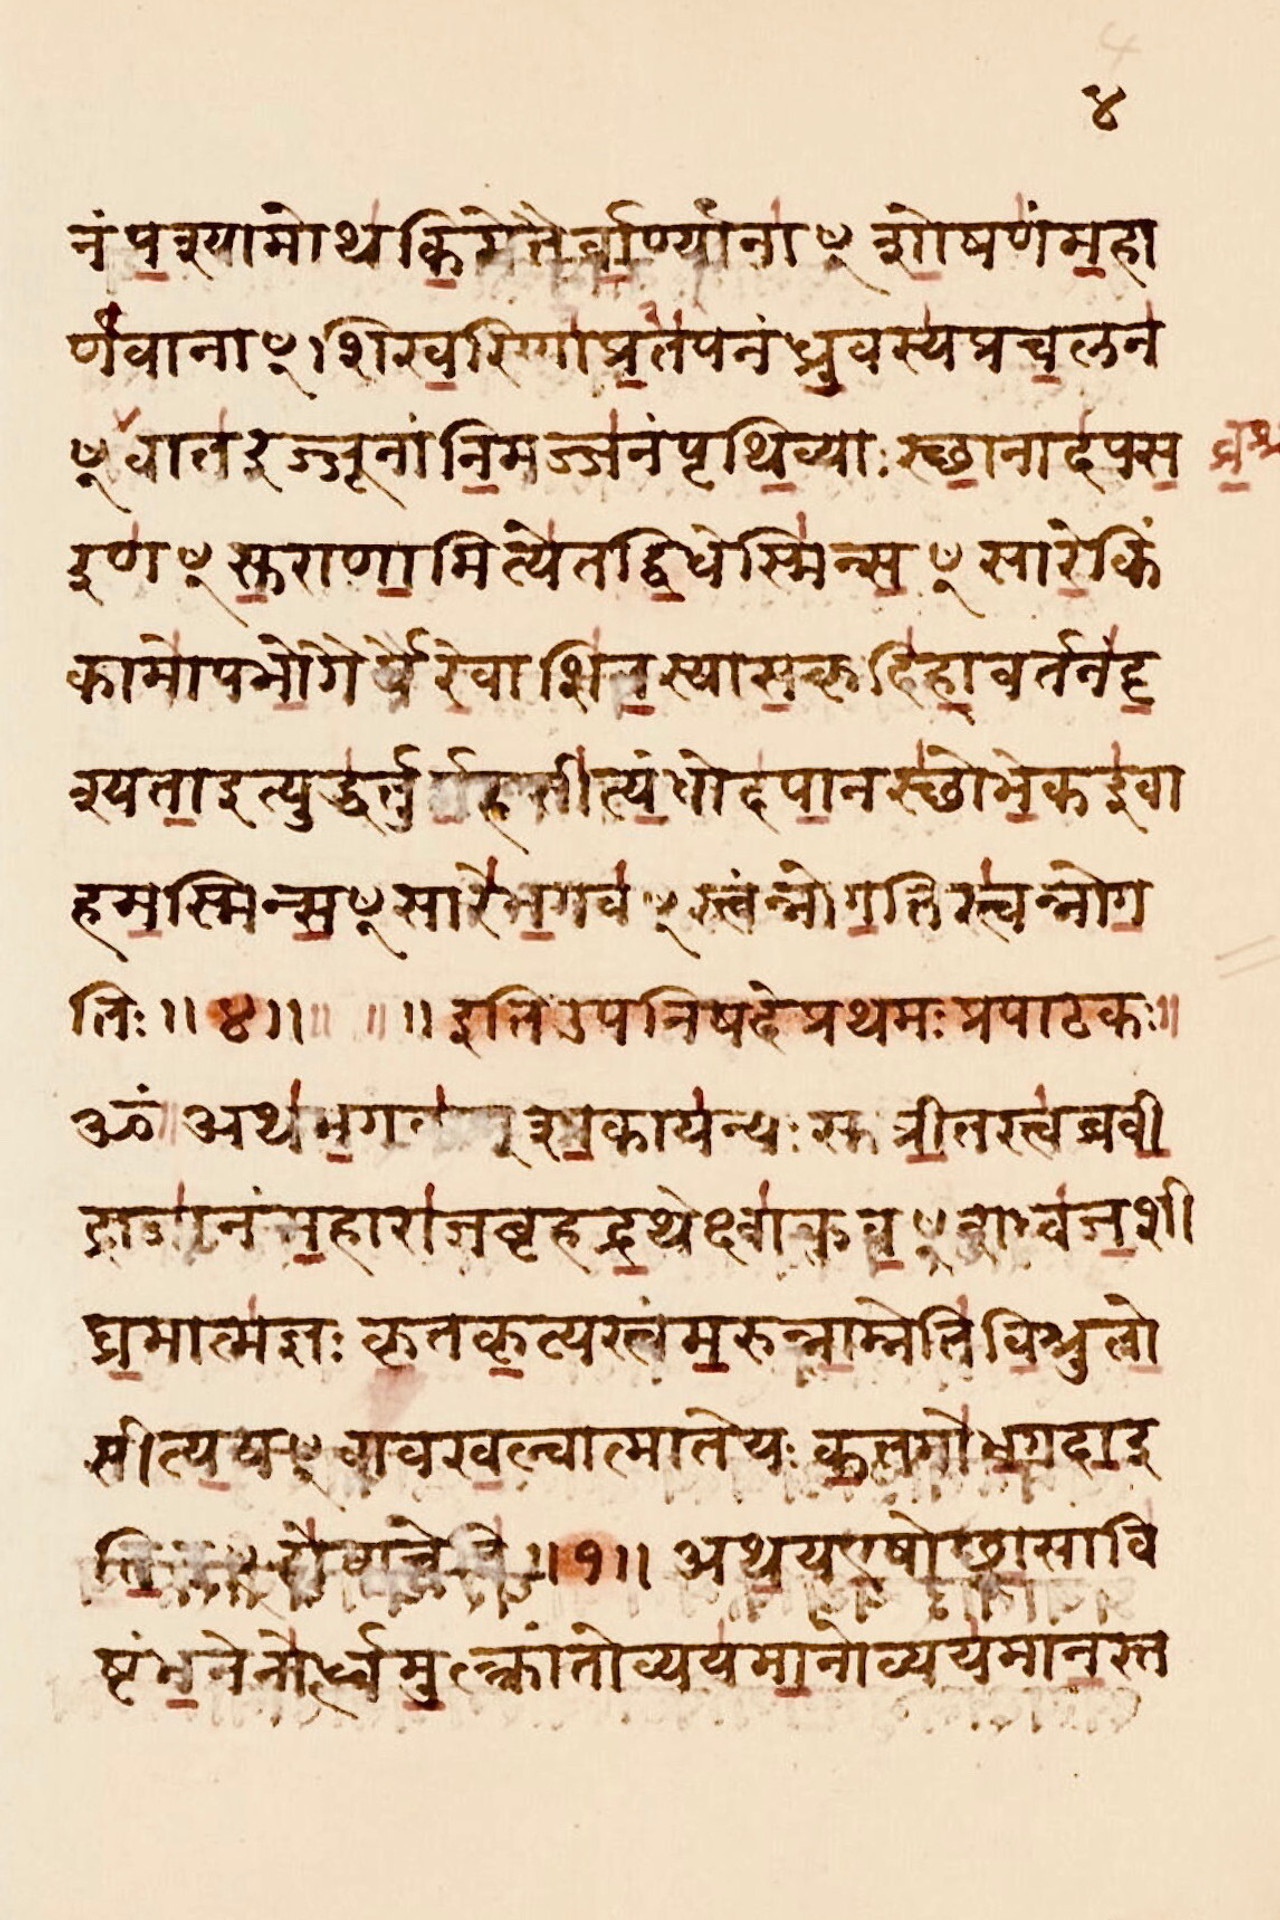 ४
नं पश्यामोथ किमेतैर्वाण्यानाꣳ शोषणं महा
र्णवानाꣳ। शिखरिणां प्रतपनं ध्रुवस्य प्रचलन
ꣳ वातरज्जूनां निमज्जनं पृथिव्याः स्छानादपस
रणꣳ सुराणामित्येतद्विधेस्मिन्सꣳसारे किं
कामोपभोगैर्यैरेवाशितस्यासकृदिहावर्तनं दृ
श्यता इत्युद्धर्तुमर्हसीत्यंधोदपानस्छो भेक इवा
हमस्मिन्सꣳसारे भगवꣳस्त्वंन्नो गतिस्त्वन्नो ग
तिः ॥ ४ ॥ ॥ इति उपनिषदे प्रथमः प्रपाठकः ॥
ॐ अथ भगवान् शाकायन्यः सुप्रीतस्त्वब्रवी
द्राजानं महाराज बृहद्रथेक्ष्वाकुवꣳशध्वज शी
घ्रमात्मज्ञः कृतकृत्यस्त्वं मरुन्नाम्नेति विश्रुतो
सीत्ययꣳ वाव खल्वात्मा ते यः कतमो भगवा इ
ति ॥ १ ॥ अथ य एषोछ्वासावि
ष्टंभनेनोर्ध्वमुत्क्रांतो व्ययमानोव्ययमानस्त